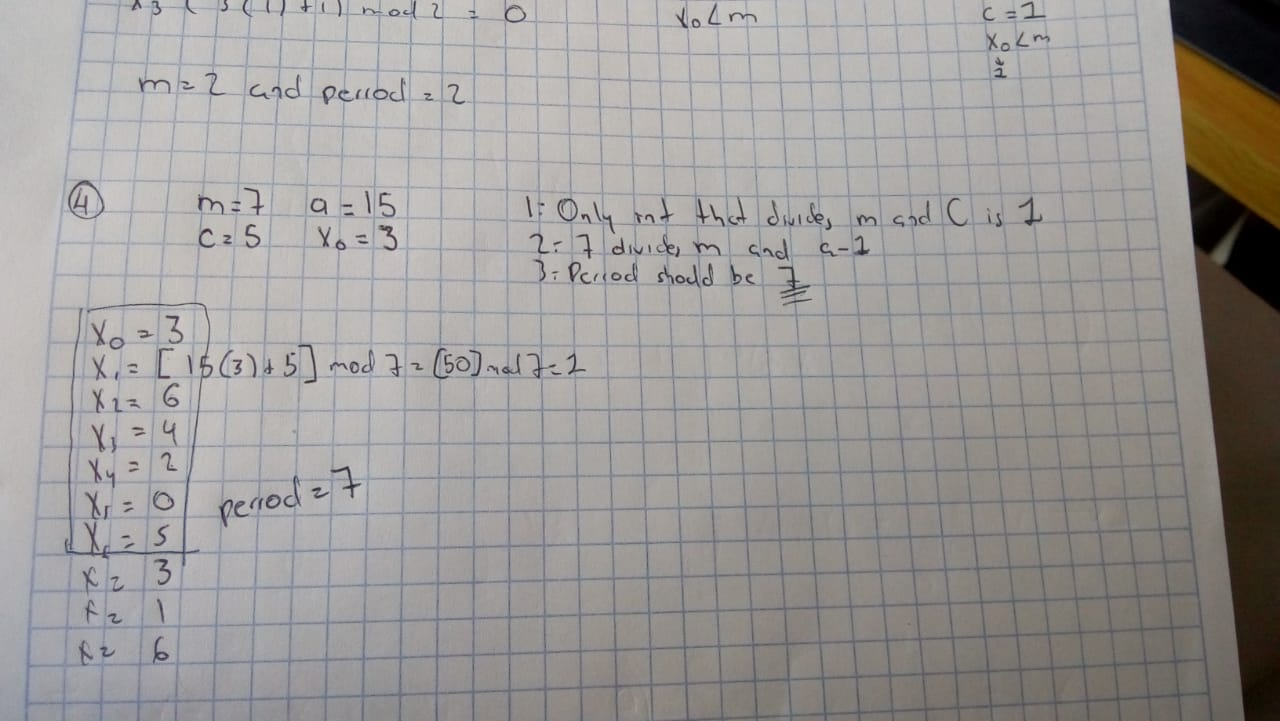 X3 ( 3 (1) +1) mod 2 = 0
X0 < m
C = 1
X0 < m
1
m = 2 and period = 2
④
m = 7 a = 15
C = 5 X0 = 3
1: Only int that divides m and C is 1
2: 7 divides m and a-1
3: Period should be 7
X0 = 3
X1 = [15(3)+5] mod 7 = [50] mod 7 = 1
X2 = 6
X3 = 4
X4 = 2
X5 = 0
period = 7
X6 = 5
X = 3
X = 1
X = 6